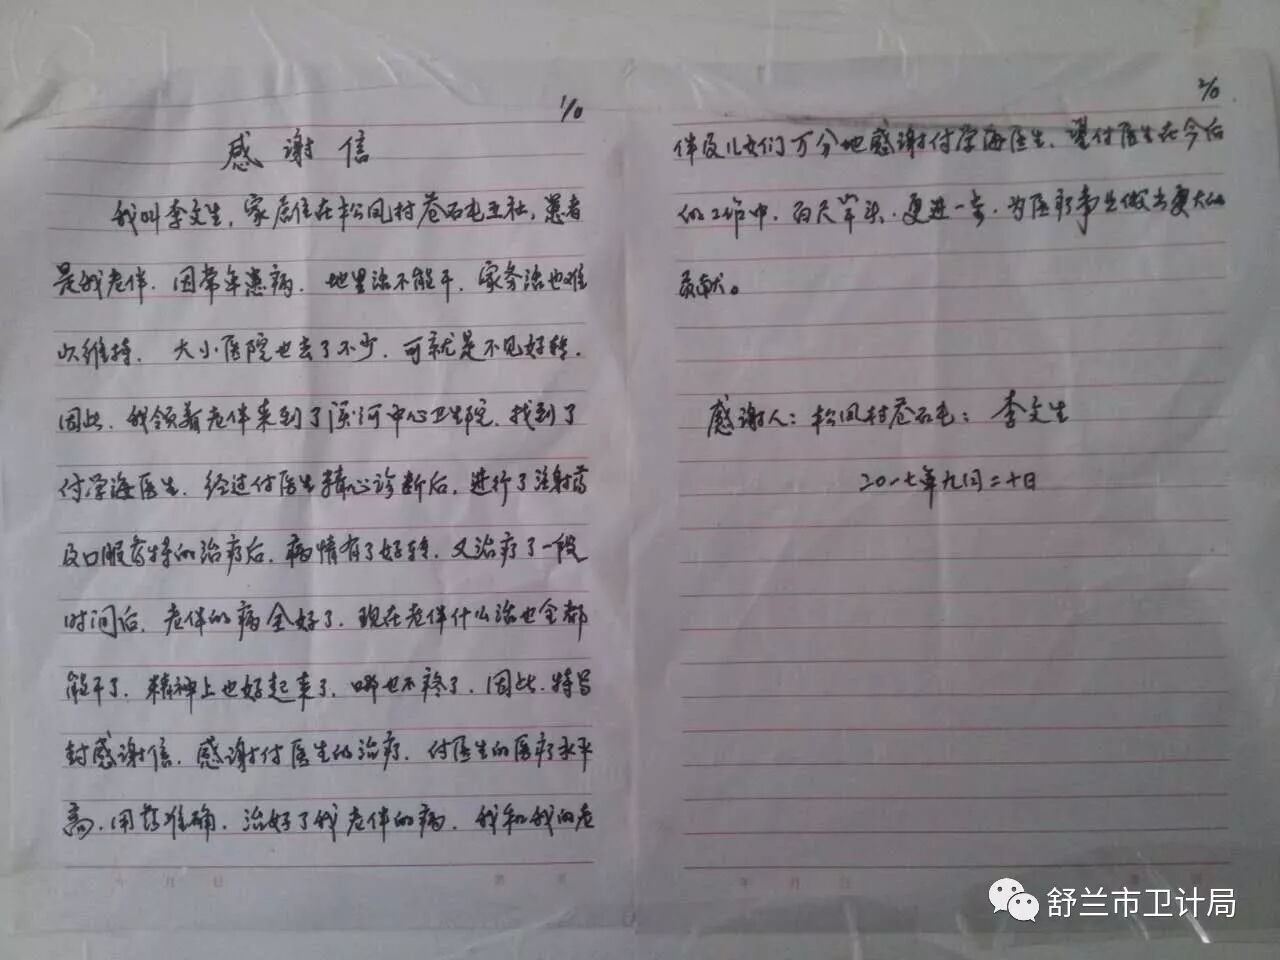 1/0
感谢信
我叫李文生，家居住在松凤村苍石屯五社，患者
是我老伴．因常年患病．地里活不能干．家务活也难
以维持． 大小医院也去了不少．可就是不见好转．
因此．我领着老伴来到了溪河中心卫生院．找到了
付学海医生．经过付医生精心诊断后．进行了注射药
及口服药特的治疗后．病情有了好转．又治疗了一段
时间后．老伴的病全好了．现在老伴什么活也全都
能干了．精神上也好起来了．哪也不疼了．因此．特写
封感谢信．感谢付医生的治疗．付医生的医疗水平
高．用药准确．治好了我老伴的病．我和我的老
年 月 日 第 页
2/0
伴及儿女们万分地感谢付学海医生．望付医生在今后
的工作中．百尺竿头．更进一步．为医疗事业做出更大的
贡献。
感谢人：松凤村苍石屯：李文生
二〇一七年九月二十日
年 月 日 第
舒兰市卫计局